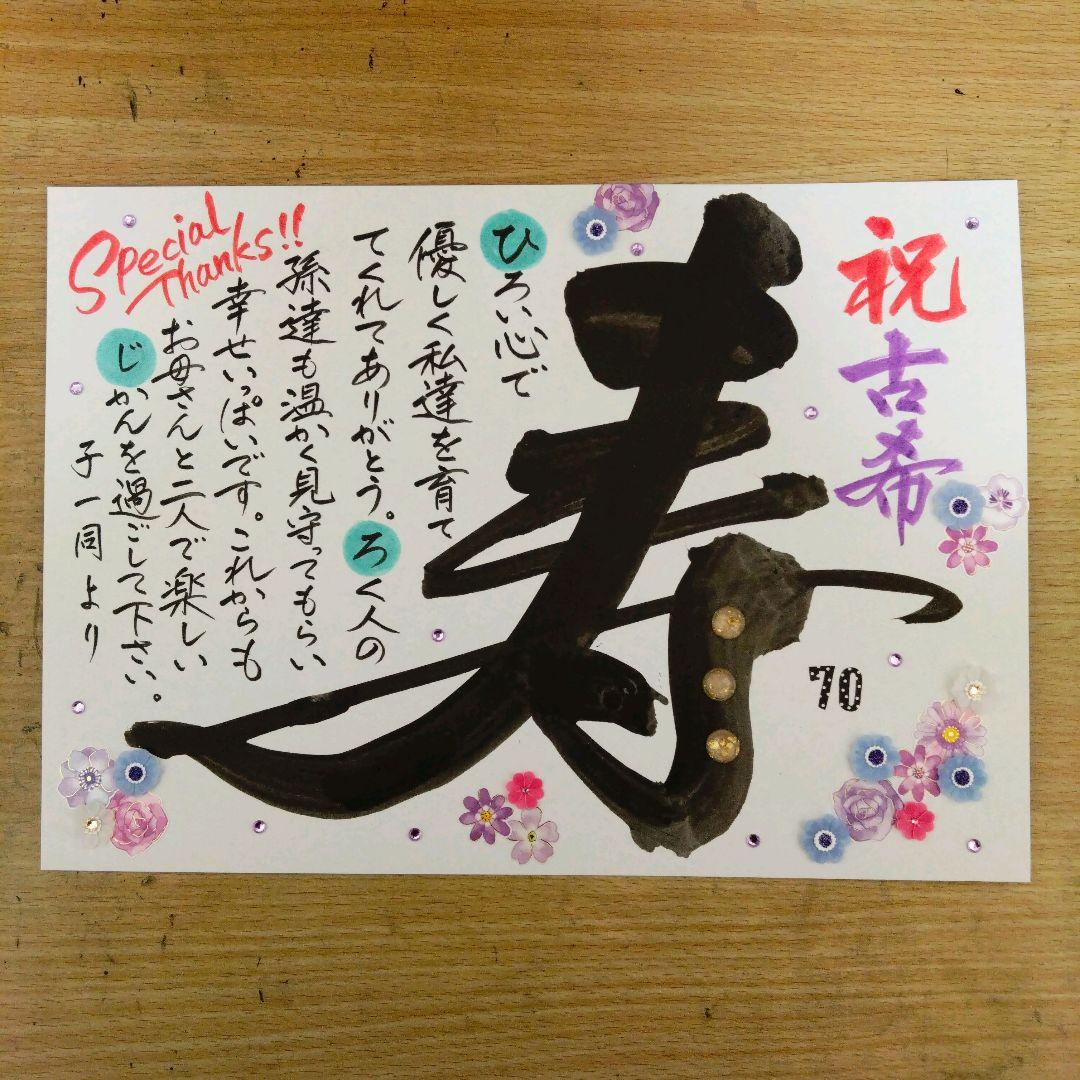 祝
古希
寿
70
ひろい心で
優しく私達を育て
てくれてありがとう。ろく人の
孫達も温かく見守ってもらい
幸せいっぱいです。これからも
お母さんと二人で楽しい
じかんを過ごして下さい。
子一同より
Special
Thanks!!